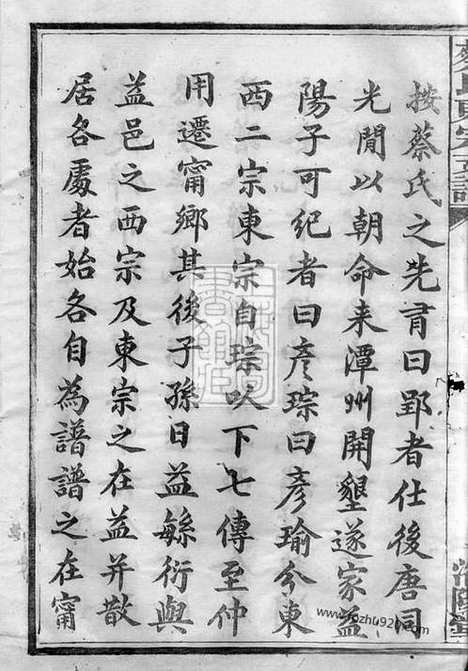 按蔡氏之先有曰郢者仕後唐同
光間以朝命来潭州開墾遂家益
陽子可紀者曰彥琮曰彥瑜分東
西二宗東宗自琮以下七傳至仲
用遷甯鄉其後子孫日益緐衍與
益邑之西宗及東宗之在益并散
居各處者始各自為譜譜之在甯